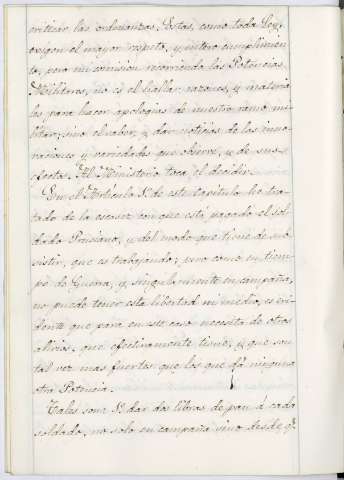 criticár las ordenanzas. Estas, como toda Ley,
exigen el mayor respeto, y entero cumplimien-
to, pero mi comision recorriendo las Potencias
Militares, no es el hallar razones, y materia-
les para hacer apologias de nuestro ramo mi-
litar, sino el saber, y dar noticias de las inno-
vaciones y variedades que observe, y de sus
efectos. Al Ministerio toca el decidir.
En el Artículo 8º de este Capitulo he tra-
tado de la escasez con que está pagado el sol-
dado Prusiano, y del modo que tiene de sub-
sistir, que es trabajando; y como en tiem-
po de Guerra, y singularmente en campaña,
no puede tener esta libertad ni medio, es evi-
dente que para en este caso necesita de otros
alivios, que efectivamente tiene, y que son
tal vez mas fuertes que los que dá ninguna
otra Potencia.
Tales son: dar dos libras de pan á cada
soldado, no solo en campaña sino desde qe.